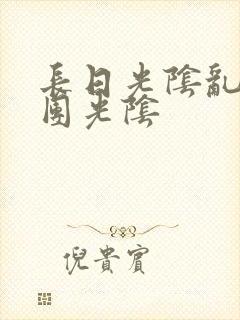 長日光陰亂
團光陰
倪貴賓